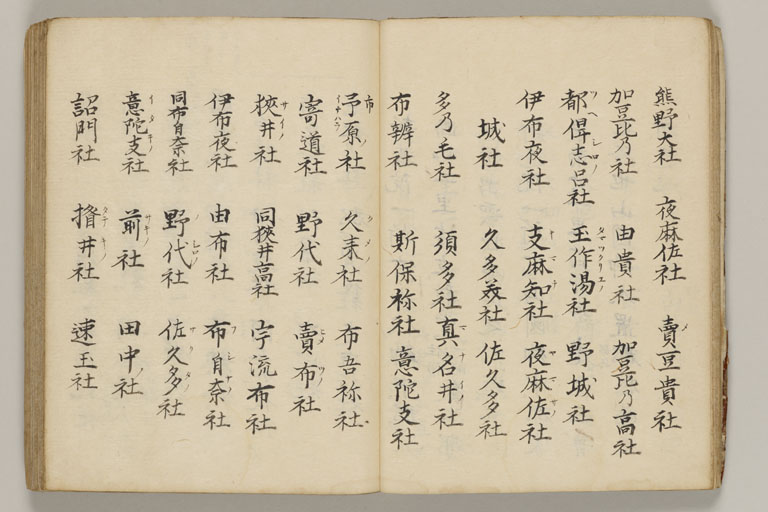 熊野大社 夜麻佐社 賣豆貴社
加豆比乃社 由貴社 加豆比乃高社
都俾志呂社 玉作湯社 野城社
伊布夜社 支麻知社 夜麻佐社
城社 久多美社 佐久多社
多乃毛社 須多社 真名井社
布辨社 斯保祢社 意陀支社
予原社 久来社 布吾祢社
寄道社 野代社 賣布社
狹井社 同狹井高社 宇流布社
伊布夜社 由布社 布自奈社
同布自奈社 野代社 佐久多社
意陀支社 前社 田中社
詔門社 揩井社 速玉社